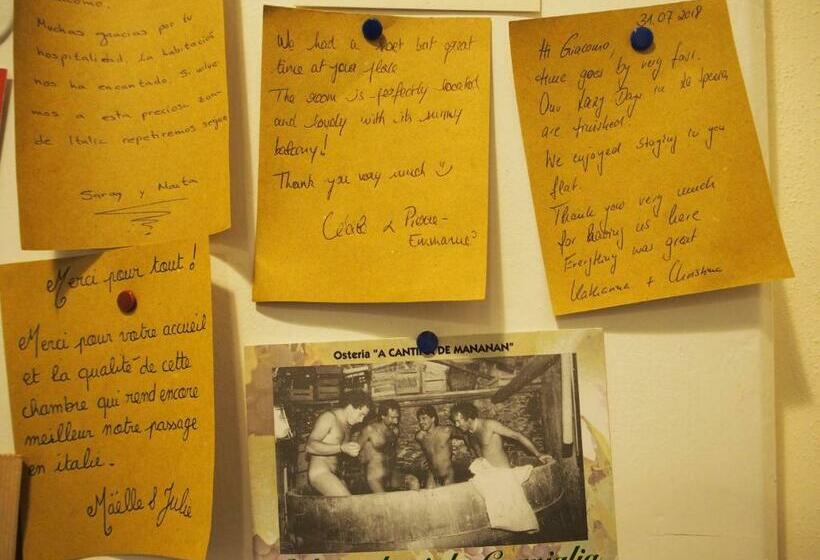 Giacomo,
Muchas gracias por tu
hospitalidad. La habitación
nos ha encantado. Si volve-
mos a esta preciosa zona
de Italia repetiremos seguro
Saray y Marta
We had a but great
time at your place
The room is perfectly located
and lovely with its sunny
balcony!
Thank you very much
& Pierre-
Emmanuel
31.07.2018
Hi Giacomo,
time goes by very fast.
Our Lazy Days in La Spezia
are finished!
We enjoyed staying in you
flat.
Thank you very much
for having us here
Everything was great
Katharina + Christina
Merci pour tout!
Merci pour votre accueil
et la qualité de cette
chambre qui rend encore
meilleur notre passage
en italie.
Maëlle & Julie
Osteria "A CANTINA DE MANANAN"
Corniglia